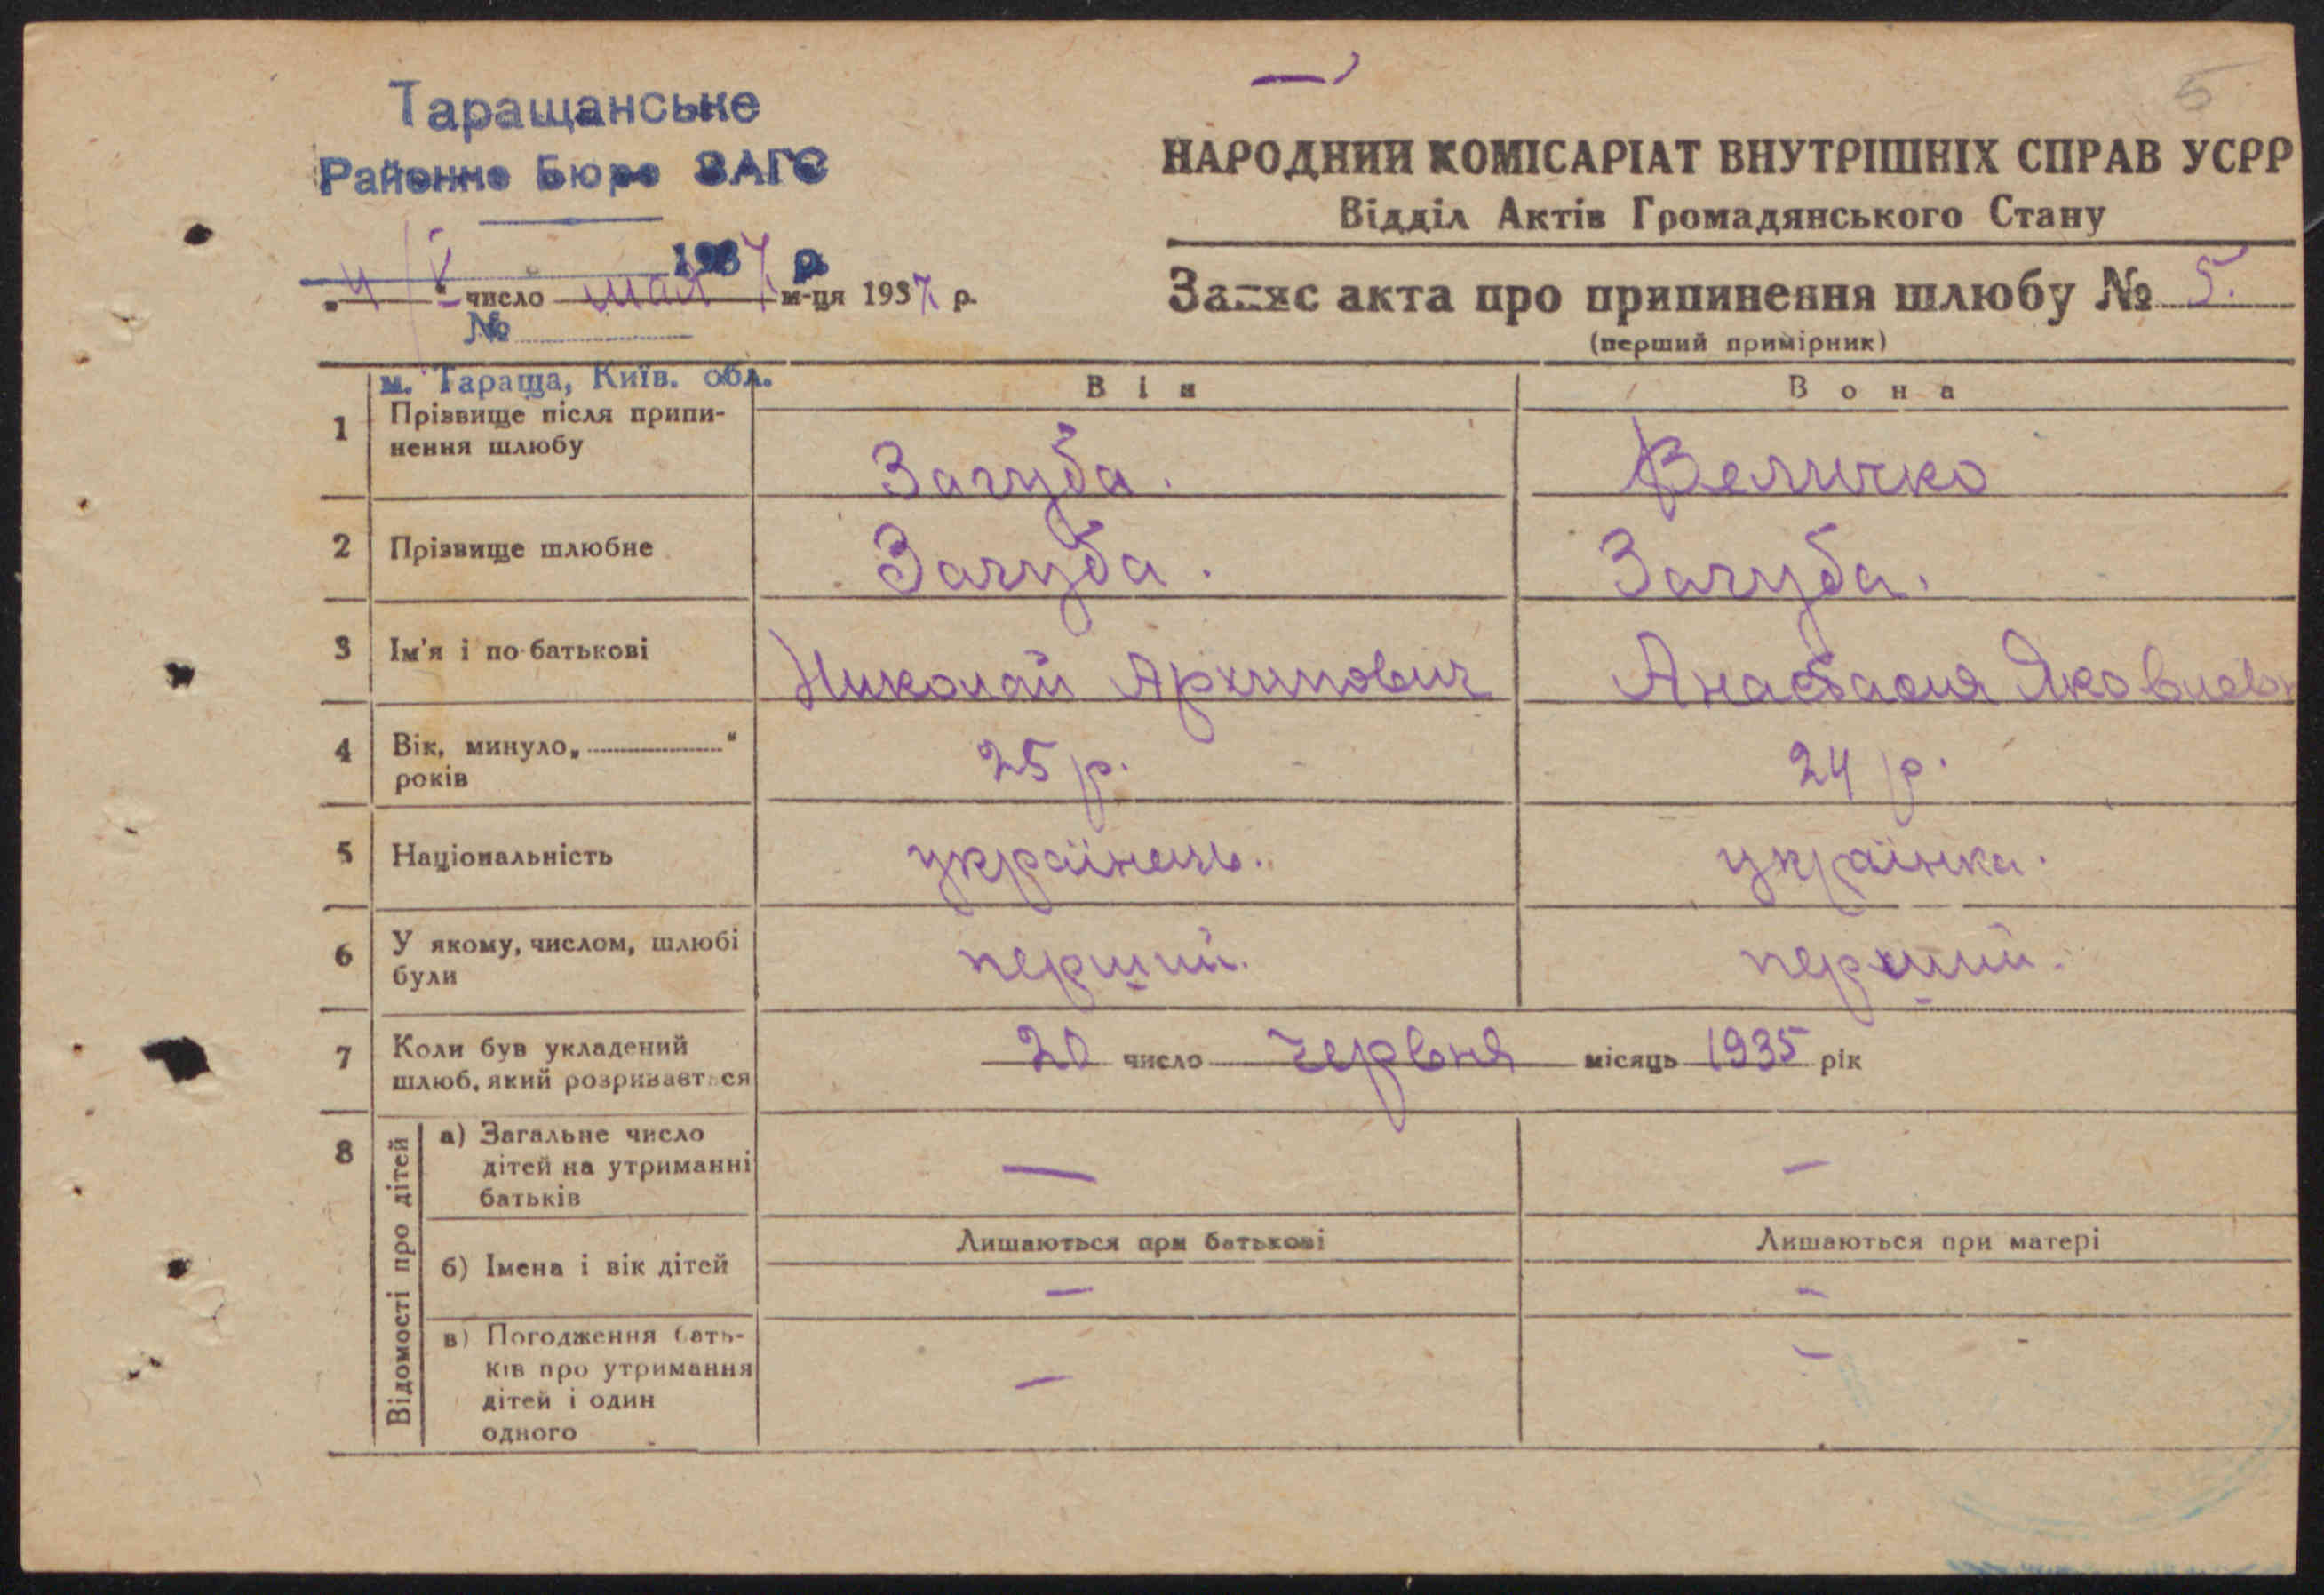 5
Таращанське
Районне Бюро ЗАГС
4/V 1937 р.
"4" число мая м-ця 1937 р.
№
м. Тараща, Київ. обл.
НАРОДНИЙ КОМІСАРІАТ ВНУТРІШНІХ СПРАВ УСРР
Відділ Актів Громадянського Стану
Запис акта про припинення шлюбу № 5.
(перший примірник)
Він Вона
1 Прізвище після припи-
нення шлюбу Загуба. Величко
2 Прізвище шлюбне Загуба. Загуба.
3 Ім'я і по-батькові Николай Архипович Анастасия Яковлевн
4 Вік, минуло „ “
років 25 р. 24 р.
5 Національність українець. українка.
6 У якому, числом, шлюбі
були перший. перший.
7 Коли був укладений
шлюб, який розривається 20 число червня місяць 1935 рік
8 Відомості про дітей
а) Загальне число
дітей на утриманні
батьків — —
Лишаються при батькові Лишаються при матері
б) Імена і вік дітей — —
в) Погодження бать-
ків про утримання
дітей і один
одного — —